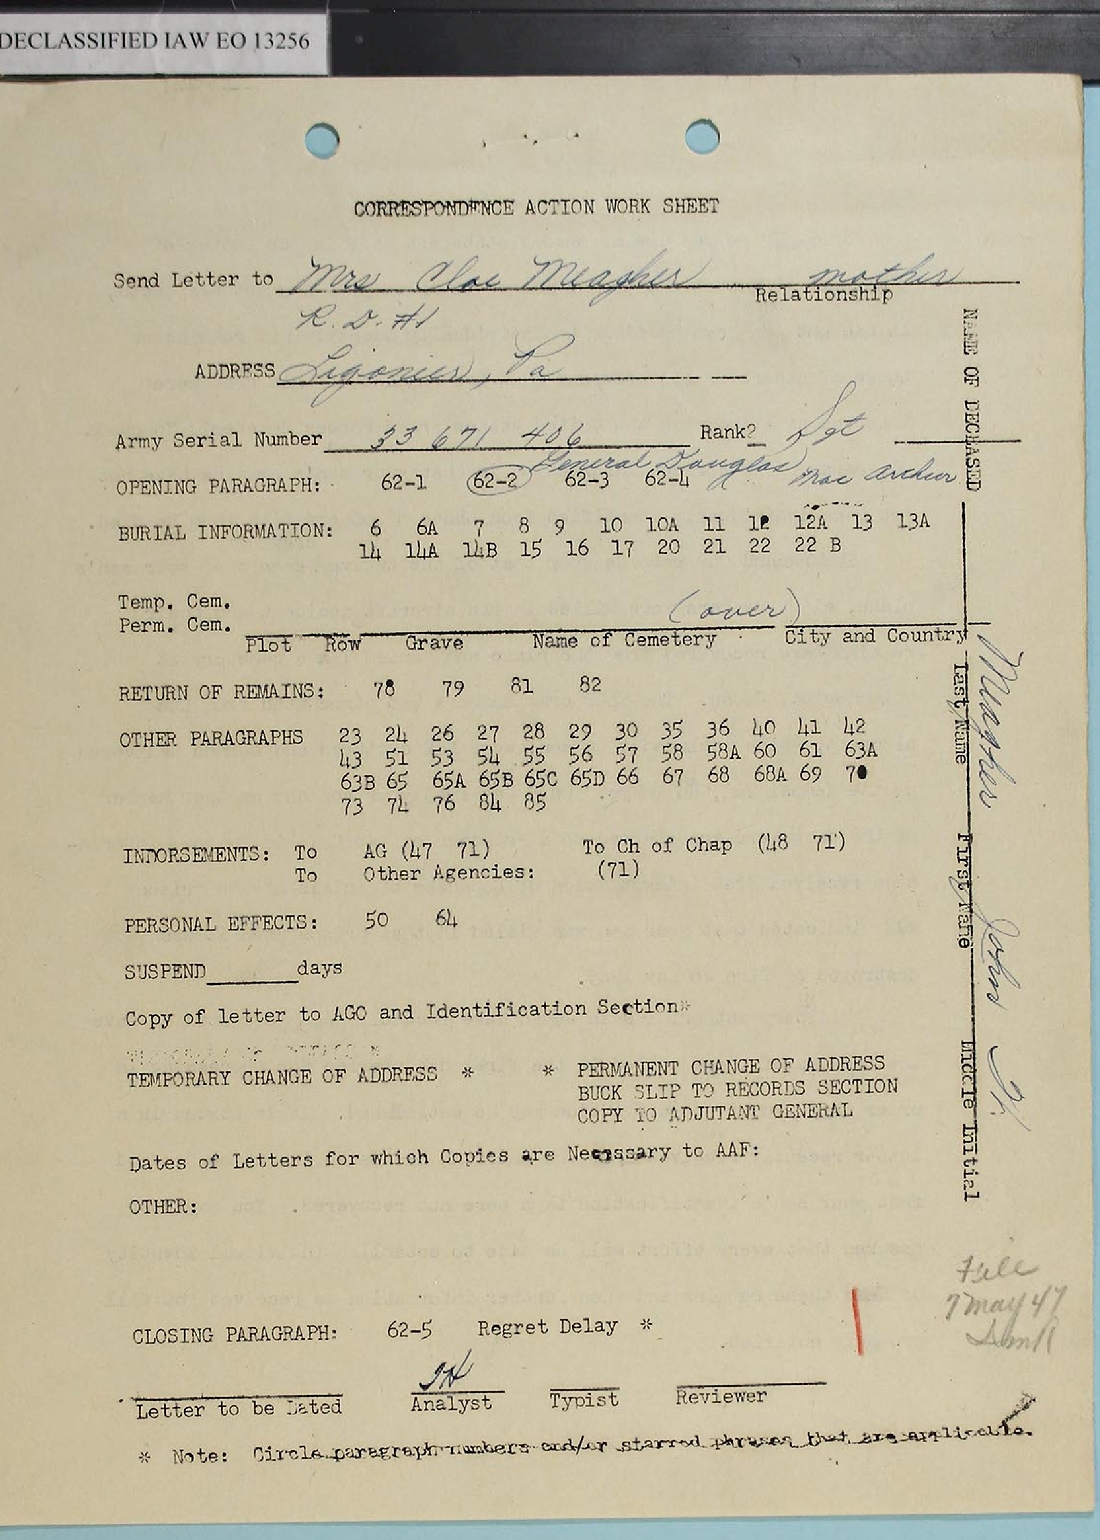 DECLASSIFIED IAW EO 13256
CORRESPONDENCE ACTION WORK SHEET
Send Letter to Mrs Cloe Meagher mother
Relationship
R.D. #1
ADDRESS Ligonier, Pa
Army Serial Number 33 671 406 Rank? Sgt
General Douglas Mac Arthur
OPENING PARAGRAPH: 62-1 62-2 62-3 62-4
BURIAL INFORMATION: 6 6A 7 8 9 10 10A 11 12 12A 13 13A
14 14A 14B 15 16 17 20 21 22 22 B
Temp. Cem.
Perm. Cem. (over)
Plot Row Grave Name of Cemetery City and Country
RETURN OF REMAINS: 78 79 81 82
OTHER PARAGRAPHS 23 24 26 27 28 29 30 35 36 40 41 42
43 51 53 54 55 56 57 58 58A 60 61 63A
63B 65 65A 65B 65C 65D 66 67 68 68A 69 70
73 74 76 84 85
INDORSEMENTS: To AG (47 71) To Ch of Chap (48 71)
To Other Agencies: (71)
PERSONAL EFFECTS: 50 64
SUSPEND ______ days
Copy of letter to AGO and Identification Section*
TEMPORARY CHANGE OF ADDRESS * * PERMANENT CHANGE OF ADDRESS
BUCK SLIP TO RECORDS SECTION
COPY TO ADJUTANT GENERAL
Dates of Letters for which Copies are Necessary to AAF:
OTHER:
CLOSING PARAGRAPH: 62-5 Regret Delay *
Letter to be Dated Analyst Typist Reviewer
* Note: Circle paragraph numbers and/or starred phrases that are applicable.
NAME OF DECEASED
Meagher John
Last Name First Name Middle Initial
File
7 May 47